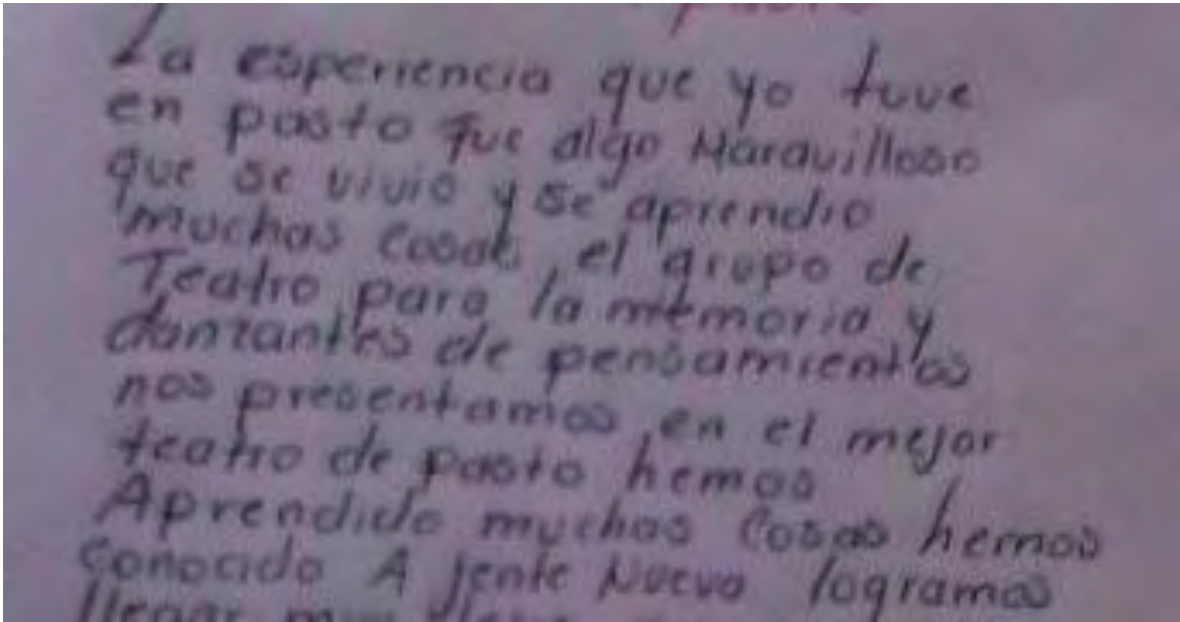 La esperiencia que yo tuve
en pasto fue algo Maravilloso
que se vivio y se aprendio
muchas cosas, el grupo de
Teatro para la memoria y
danzantes de pensamientos
nos presentamos en el mejor
teatro de pasto hemos
Aprendido muchas Cosas hemos
conocido A jente Nueva logramos
llegar muy